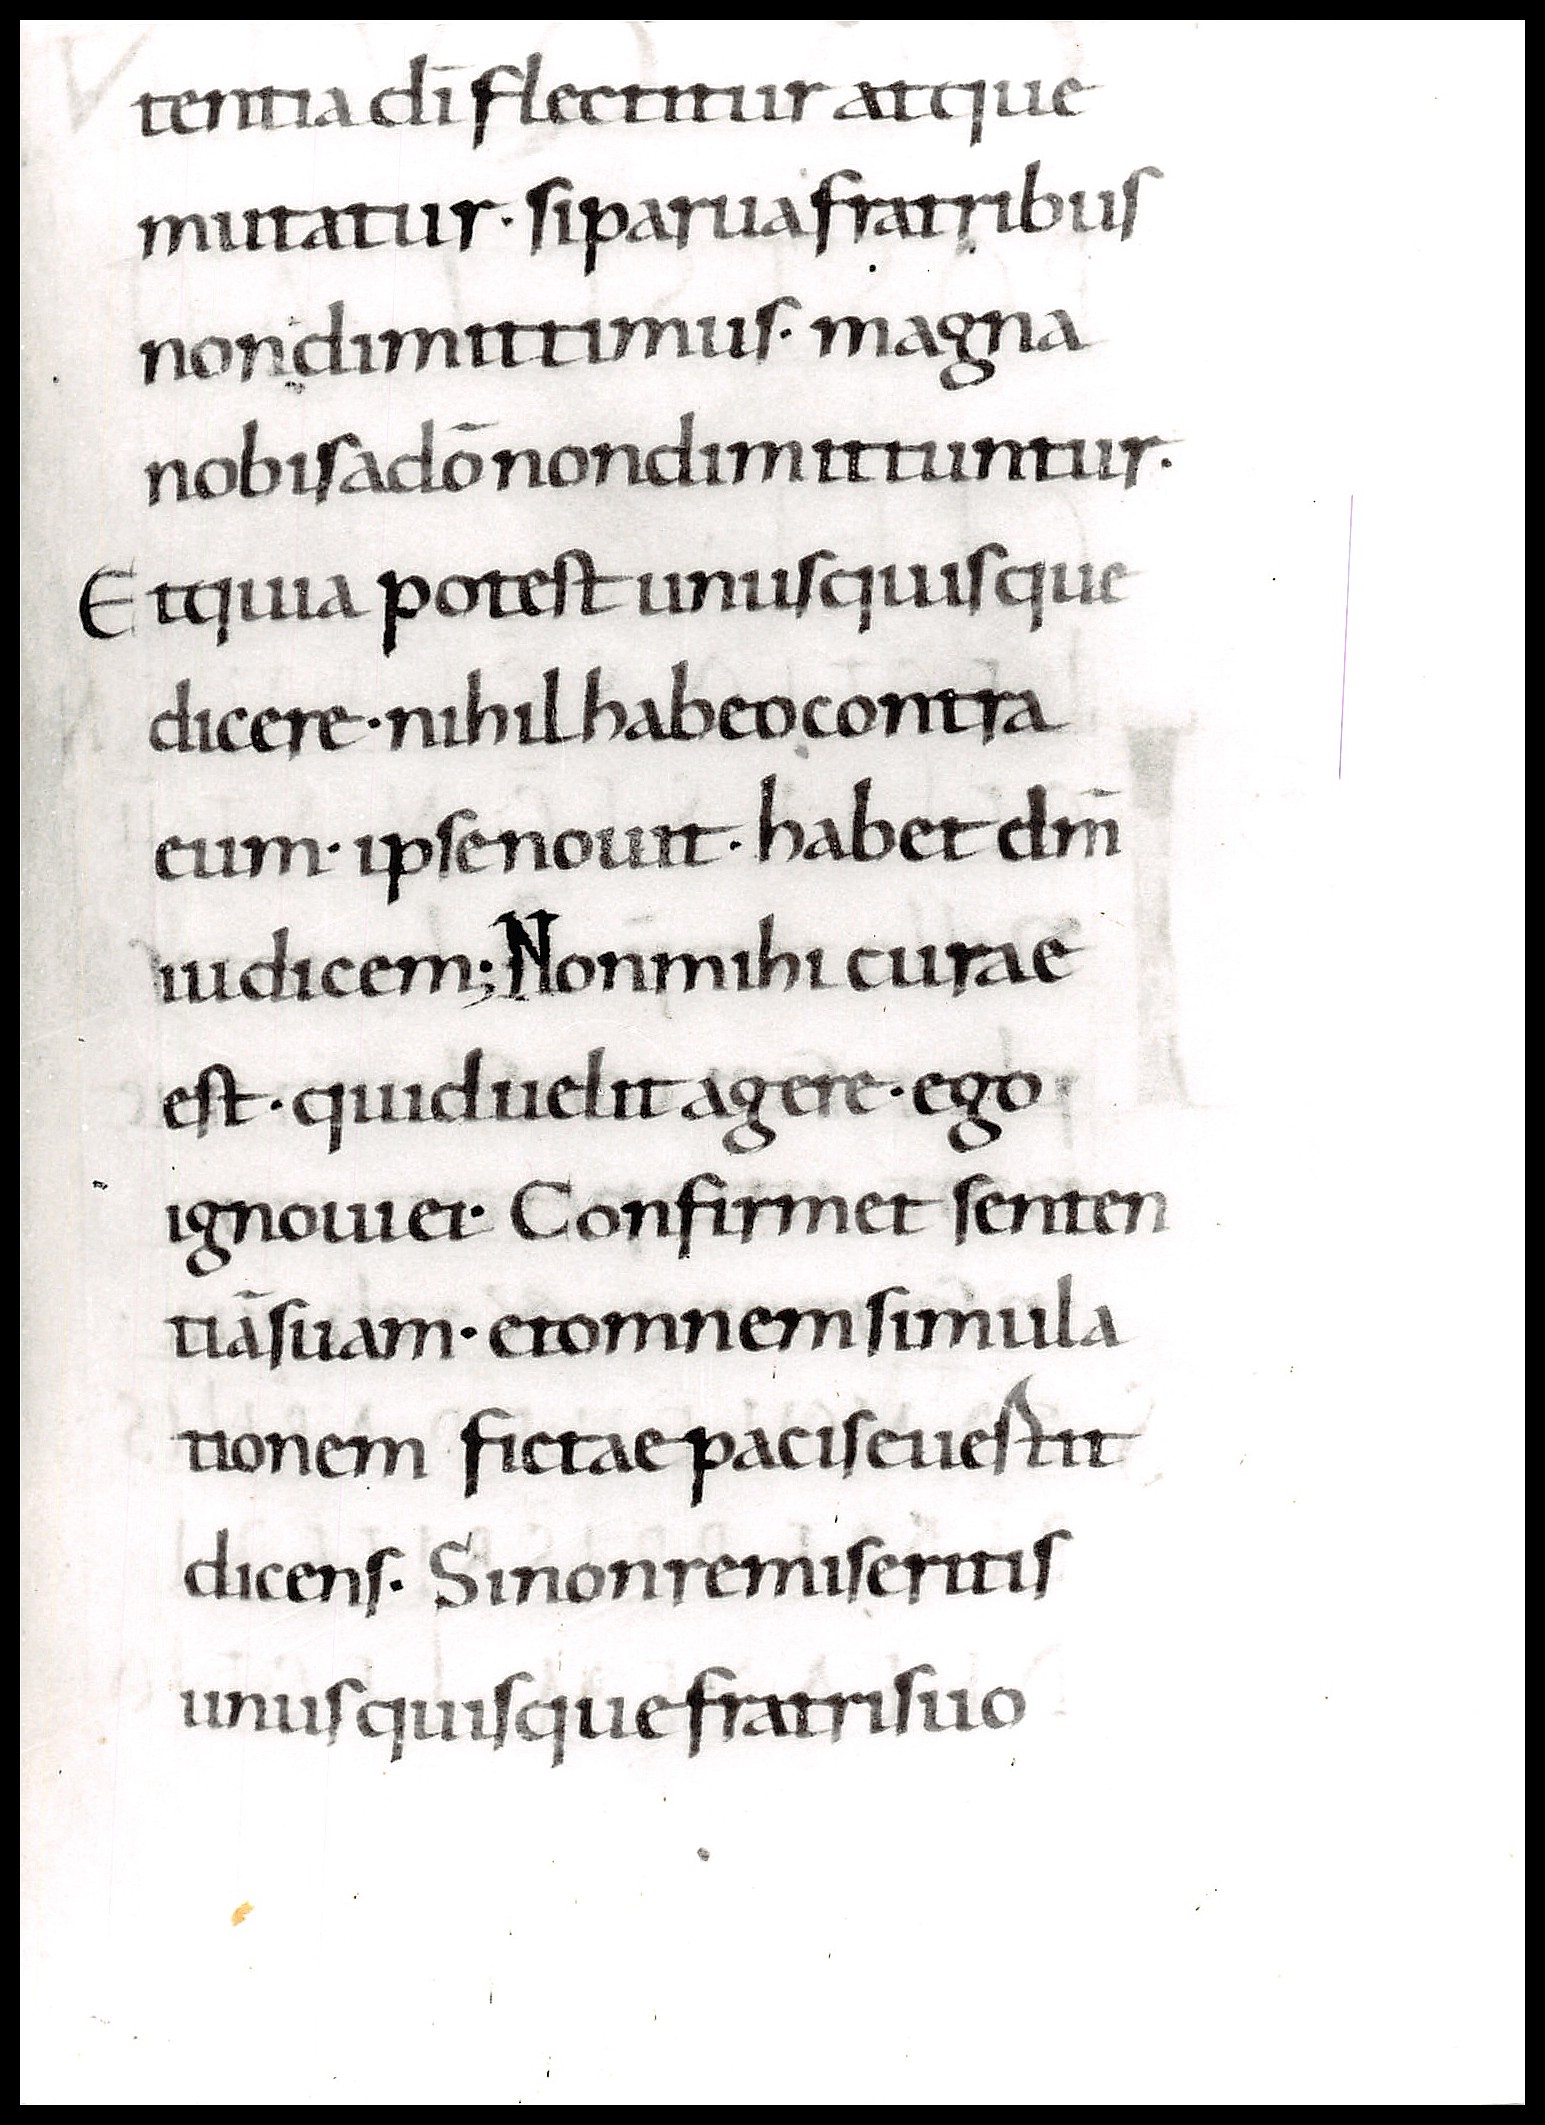 tentia dī flectitur atque
mutatur · si parua fratribus
non dimittimus · magna
nobis a dō non dimittuntur ·
Et quia potest unusquisque
dicere · nihil habeo contra
eum · ipse nouit · habet dm̄
iudicem; Non mihi curae
est · quid uelit agere · ego
ignoui ei · Confirmet senten
tiā suam · et omnem simula
tionem fictae pacis euertit
dicens · Si non remiseritis
unusquisque fratri suo